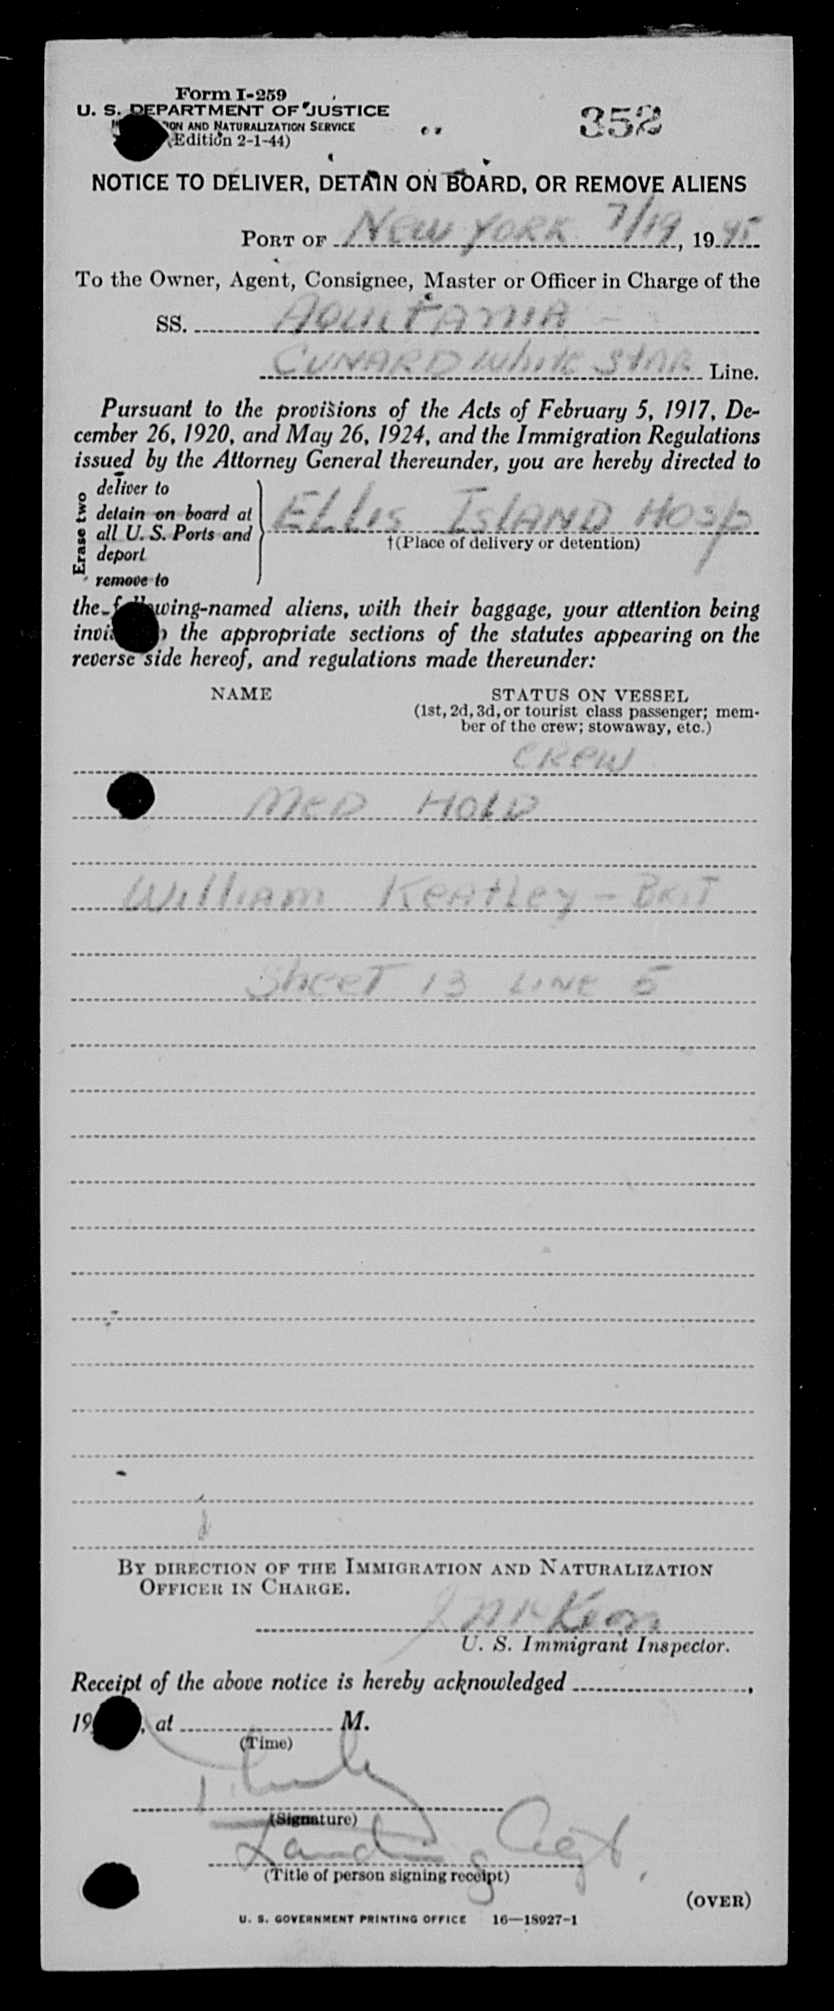 Form I-259
U. S. DEPARTMENT OF JUSTICE
ON AND NATURALIZATION SERVICE
(Edition 2-1-44)
352
NOTICE TO DELIVER, DETAIN ON BOARD, OR REMOVE ALIENS
PORT OF New York 7/19, 1945
To the Owner, Agent, Consignee, Master or Officer in Charge of the
SS. Aquitania -
Cunard White Star Line.
Pursuant to the provisions of the Acts of February 5, 1917, De-
cember 26, 1920, and May 26, 1924, and the Immigration Regulations
issued by the Attorney General thereunder, you are hereby directed to
Erase two
deliver to
detain on board at
all U. S. Ports and
deport
remove to
Ellis Island Hosp
†(Place of delivery or detention)
the following-named aliens, with their baggage, your attention being
the appropriate sections of the statutes appearing on the
reverse side hereof, and regulations made thereunder:
NAME
STATUS ON VESSEL
(1st, 2d, 3d, or tourist class passenger; mem-
ber of the crew; stowaway, etc.)
Crew
Med Hold
William Keatley - Brit
Sheet 13 Line 5
BY DIRECTION OF THE IMMIGRATION AND NATURALIZATION
OFFICER IN CHARGE.
U. S. Immigrant Inspector.
Receipt of the above notice is hereby acknowledged ,
19 , at M.
(Time)
(Signature)
Landing Agt.
(Title of person signing receipt)
(OVER)
U. S. GOVERNMENT PRINTING OFFICE 16—18927-1